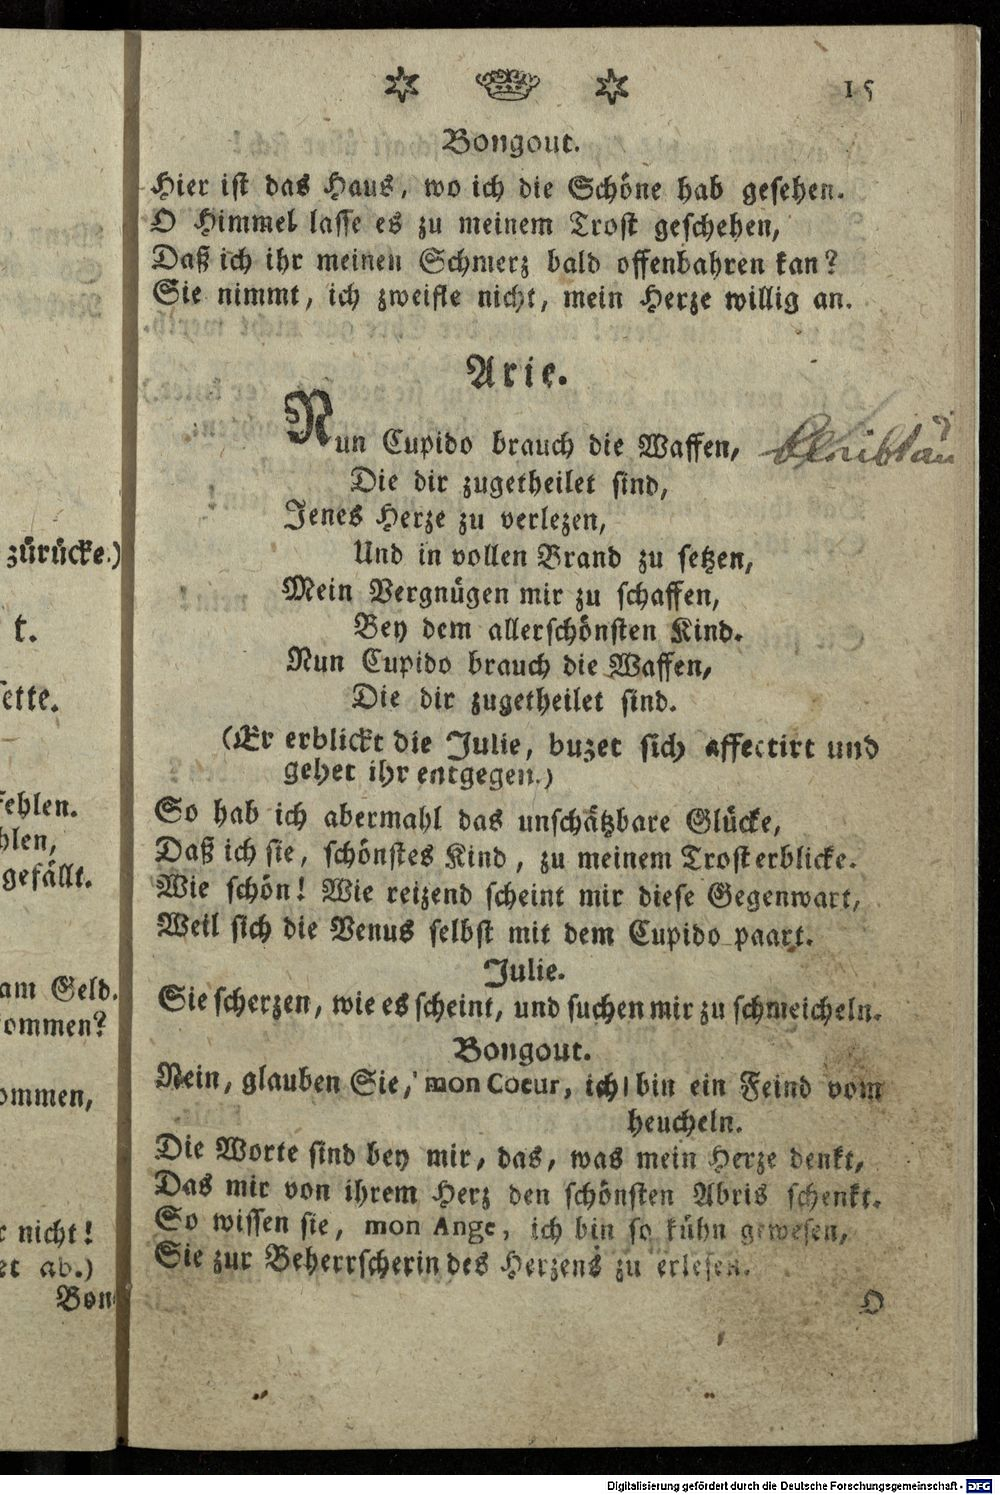 zürücke.)
t.
sette.
fehlen.
hlen,
gefällt.
am Geld.
kommen?
ommen,
r nicht!
et ab.)
Bon-
15
Bongout.
Hier ist das Haus, wo ich die Schöne hab gesehen.
O Himmel lasse es zu meinem Trost geschehen,
Daß ich ihr meinen Schmerz bald offenbahren kan?
Sie nimmt, ich zweifle nicht, mein Herze willig an.
Arie.
Nun Cupido brauch die Waffen,
Die dir zugetheilet sind,
Jenes Herze zu verlezen,
Und in vollen Brand zu setzen,
Mein Vergnügen mir zu schaffen,
Bey dem allerschönsten Kind.
Nun Cupido brauch die Waffen,
Die dir zugetheilet sind.
(Er erblickt die Julie, buzet sich affectirt und
gehet ihr entgegen.)
So hab ich abermahl das unschätzbare Glücke,
Daß ich sie, schönstes Kind, zu meinem Trost erblicke.
Wie schön! Wie reizend scheint mir diese Gegenwart,
Weil sich die Venus selbst mit dem Cupido paart.
Julie.
Sie scherzen, wie es scheint, und suchen mir zu schmeicheln.
Bongout.
Nein, glauben Sie, mon Coeur, ich bin ein Feind vom
heucheln.
Die Worte sind bey mir, das, was mein Herze denkt,
Das mir von ihrem Herz den schönsten Abris schenkt.
So wissen sie, mon Ange, ich bin so kühn gewesen,
Sie zur Beherrscherin des Herzens zu erlesen.
O
Digitalisierung gefördert durch die Deutsche Forschungsgemeinschaft - DFG